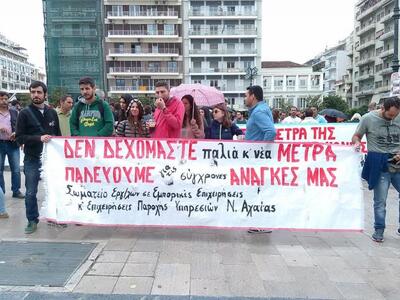 ΔΕΝ ΔΕΧΟΜΑΣΤΕ παλιά κ' νέα ΜΕΤΡΑ
ΠΑΛΕΥΟΥΜΕ για τις σύγχρονες ΑΝΑΓΚΕΣ ΜΑΣ
Σωματείο Εργ/ζων σε Εμπορικές Επιχειρήσεις
κ' Επιχειρήσεις Παροχής Υπηρεσιών Ν. Αχαΐας
ΜΕΤΡΑ ΤΗΣ